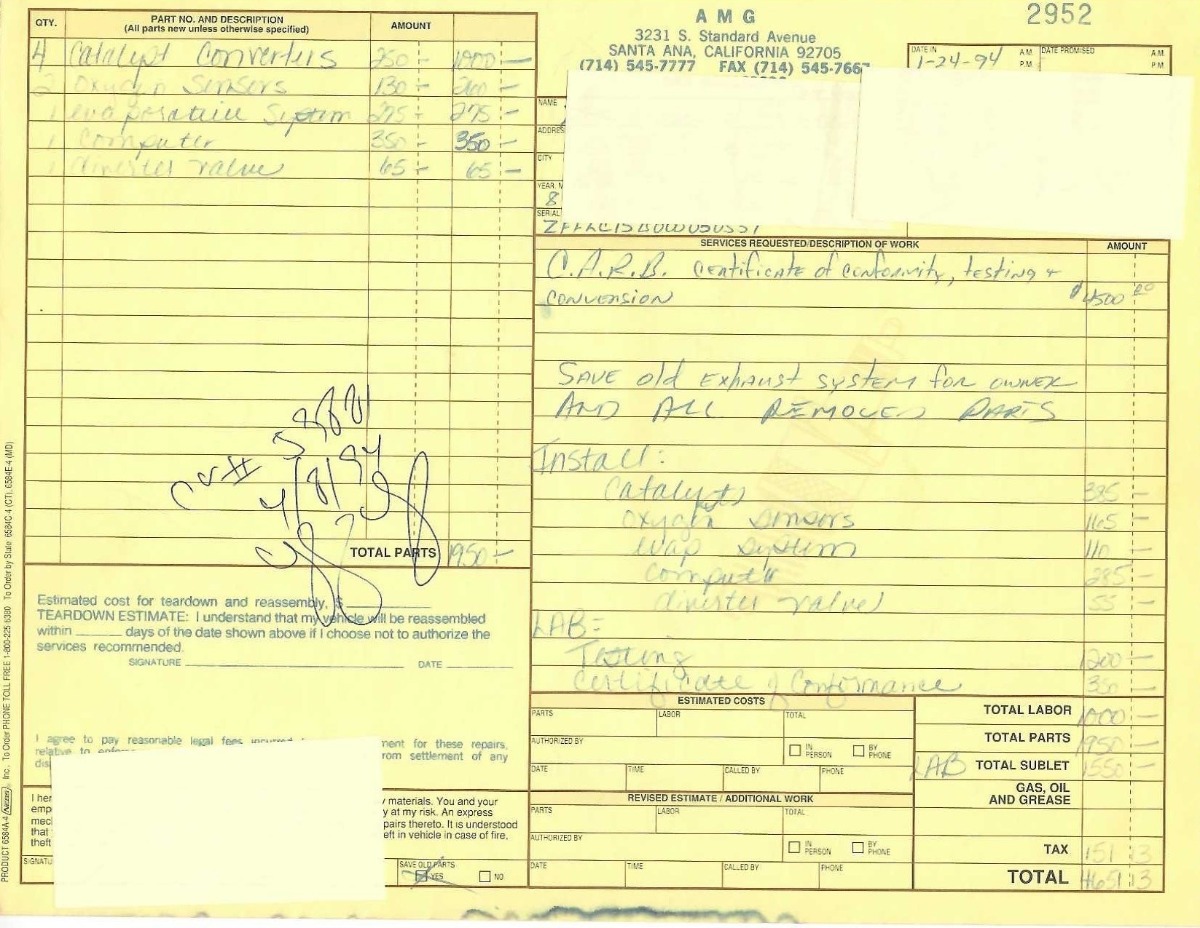 QTY. PART NO. AND DESCRIPTION AMOUNT
(All parts new unless otherwise specified)
4 Catalyst Converters 250 - 1000 -
2 Oxygen Sensors 130 - 260 -
1 evaporative System 275 - 275 -
1 Computer 350 - 350 -
1 diverter valve 65 - 65 -
58821
4/8/94
TOTAL PARTS 1950 -
Estimated cost for teardown and reassembly, $
TEARDOWN ESTIMATE: I understand that my vehicle will be reassembled
within ______ days of the date shown above if I choose not to authorize the
services recommended.
SIGNATURE DATE
I agree to pay reasonable legal fees
ment for these repairs,
relative to
rom settlement of any
I her
y materials. You and your
y at my risk. An express
mec
pairs thereto. It is understood
that
eft in vehicle in case of fire,
theft
SIGNATU
SAVE OLD PARTS
YES NO
PRODUCT 6584A-4 (NEBS), Inc., To Order PHONE TOLL FREE 1-800-225-6380 To Order by State 6584C-4 (CT), 6584E-4 (MD)
AMG
3231 S. Standard Avenue
SANTA ANA, CALIFORNIA 92705
(714) 545-7777 FAX (714) 545-7667
2952
DATE IN 1-24-94 A.M. P.M. DATE PROMISED A.M. P.M.
NAME
ADDRES
CITY
YEAR, M
8
SERIAL
SERVICES REQUESTED/DESCRIPTION OF WORK AMOUNT
C.A.R.B. certificate of conformity, testing +
conversion $4500.00
SAVE old exhaust system for owner
AND ALL REMOVED PARTS
Install:
Catalysts 385 -
oxygen sensors 165 -
evap system 110 -
computer 285 -
diverter valve 55 -
LAB:
Testing 1200 -
Certificate of Conformance 350 -
ESTIMATED COSTS
PARTS LABOR TOTAL
AUTHORIZED BY IN PERSON BY PHONE
DATE TIME CALLED BY PHONE
REVISED ESTIMATE / ADDITIONAL WORK
PARTS LABOR TOTAL
AUTHORIZED BY IN PERSON BY PHONE
DATE TIME CALLED BY PHONE
TOTAL LABOR 1000 -
TOTAL PARTS 1950 -
LAB TOTAL SUBLET 1550 -
GAS, OIL
AND GREASE
TAX 151 13
TOTAL 4651 13